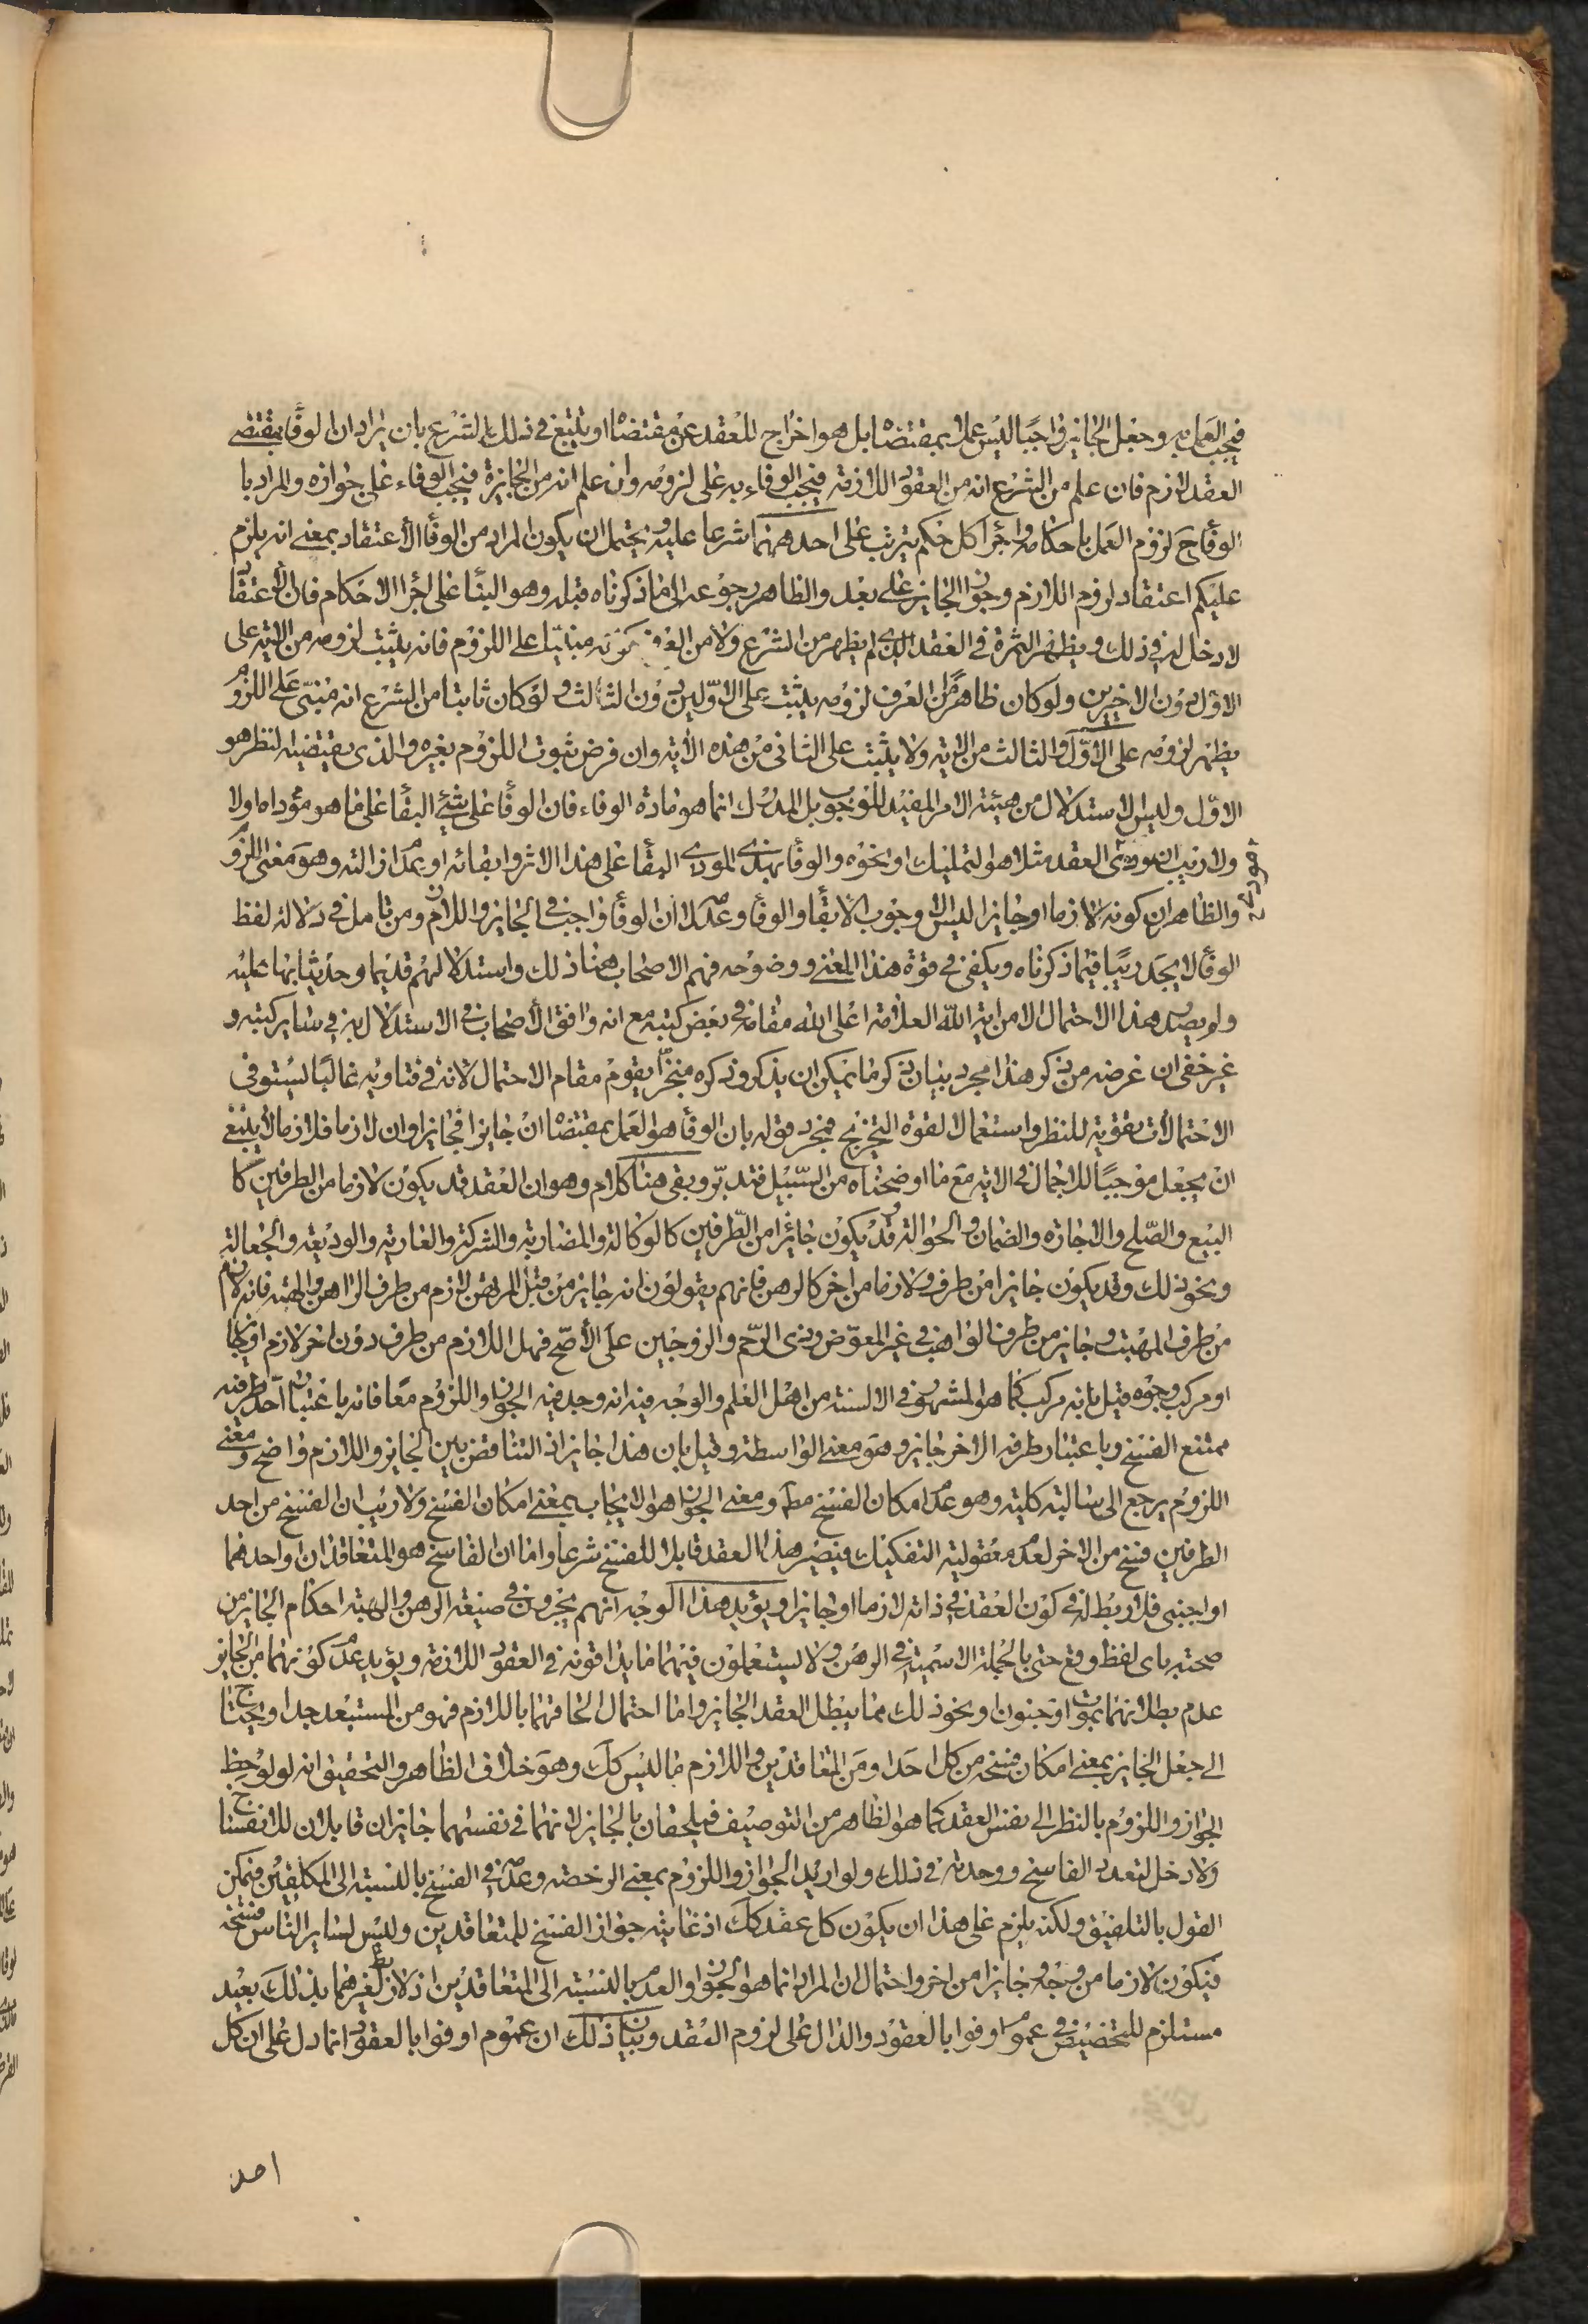 فيجب العمل به وجعل الجايز واجبا ليس عملا بمقتضاها بل هو اخراج للعقد عن مقتضاها او يتبع في ذلك الشرع بان يراد ان الوفا بمقتضى
العقد لازم فان علم من الشرع انه من العقود اللازمة فيجب الوفاء به على لزومه وان علم انه من الجايزة فيجب الوفاء على جوازه والمراد با
الوفاح لزوم العمل باحكامه واجرا كل حكم يترتب على احدهما شرعا عليه ويحتمل ان يكون المراد من الوفا الاعتقاد بمعنى انه يلزم
عليكم اعتقاد لزوم اللازم وجواز الجايز على بعد والظاهر رجوعه الى ما ذكرناه قبله وهو البنا على اجرا الاحكام فان الاعتقاد
لا دخل له في ذلك ويظهر الثمرة في العقد الذي لم يظهر من الشرع ولا من العرف كونه مبنيا على اللزوم فانه يثبت لزومه من الاية على
الاول دون الاخيرين ولو كان ظاهرا من العرف لزومه يثبت على الاولين دون الثالث ولو كان ثابتا من الشرع انه مبني على اللزوم
يظهر لزومه على الاول والثالث من الاية ولا يثبت على الثاني من هذه الاية وان فرض ثبوت اللزوم بغيره والذي يقتضيه النظر هو
الاول وليس الاستدلال من هيئة الامر المفيد للوجوب بل المدرك انما هو مادة الوفاء فان الوفا على شئ البقا على ما هو مؤداه اولا
ولا ريب ان مودى العقد مثلا هو التمليك او نحوه والوفا بهذى المودى البقا على هذا الاثر وابقائه او عدم ازالته وهو معنى اللزوم
والظاهر ان كونه لازما او جايزا ليس الا وجوب الابقا والوفا وعدمه لا ان الوفا واجب في الجايز واللازم ومن تامل في دلالة لفظ
الوفا لا يجد ريبا فيما ذكرناه ويكفي في قوة هذا المعنى ووضوحه فهم الاصحاب هنا ذلك واستدلالهم قديما وحديثا بها عليه
ولم يصدر هذا الاحتمال الا من اية الله العلامة اعلى الله مقامه في بعض كتبه مع انه وافق الاصحاب في الاستدلال به في ساير كتبه و
غير خفي ان غرضه من ذكر هذا مجرد بيان ذكر ما يمكن ان يذكر وذكره منجزا يقوم مقام الاحتمال لانه في فتاويه غالبا يستوفي
الاحتمالات تقوية للنظر واستعمالا لقوة التخريج فمجرد قوله بان الوفا هو العمل بمقتضاها ان جايزا فجايزا وان لازما فلازما لا ينبغي
ان يجعل موجبا للاجمال في الاية مع ما اوضحناه من السبيل فتدبر وبقي هنا كلام وهو ان العقد قد يكون لازما من الطرفين كا
البيع والصلح والاجارة والضمان والحوالة وقد يكون جائزا من الطرفين كالوكالة والمضاربة والشركة والعارية والوديعة والجعالة
ونحو ذلك وقد يكون جايزا من طرف ولازما من اخر كالرهن فانهم يقولون انه جايز من قبل المرتهن لازم من طرف الراهن والهبة فانه لازم
من طرف المتهب وجايز من طرف الواهب في غير المعوض وذى الرحم والزوجين على الاصح فهل اللازم من طرف دون اخر لازم او جايز
او مركب وجوه قيل بانه مركب كما هو المشهور في الالسنة من اهل العلم والوجه فيه انه وجد فيه الجواز واللزوم معا فانه باعتبار احد طرفيه
ممتنع الفسخ وباعتبار طرفه الاخر جايز وهو معنى الواسطة وقيل بان هذا جايز اذ التناقض بين الجايز واللازم واضح ومعنى
اللزوم يرجع الى سالبة كلية وهو عدم امكان الفسخ مطلقا ومعنى الجواز هو الايجاب بمعنى امكان الفسخ ولا ريب ان الفسخ من احد
الطرفين فسخ من الاخر لعدم معقولية التفكيك فيصير هذا العقد قابلا للفسخ شرعا واما ان الفاسخ هو المتعاقدان او احدهما
او اجنبي فلا ربط له في كون العقد في ذاته لازما او جايزا ويؤيد هذا الوجه انهم يجرون في صيغة الرهن والهبة احكام الجايز من
صحته باى لفظ وقع حتى بالجملة الاسمية في الرهن ولا يستعملون فيهما ما يداقونه في العقود اللازمة ويؤيد عدم كونهما من الجايز
عدم بطلانهما بموت او جنون او نحو ذلك مما يبطل العقد الجايز واما احتمال الحاقهما باللازم فهو من المستبعد جدا ويحتاج
الى جعل الجايز بمعنى امكان فسخه من كل احد او من المتعاقدين واللازم ما ليس كك وهو خلاف الظاهر والتحقيق انه لو لوحظ
الجواز واللزوم بالنظر الى نفس العقد كما هو الظاهر من التوصيف فيلحقان بالجايز لانهما في نفسهما جايزان قابلان للانفساخ
ولا دخل لتعدد الفاسخ ووحدته في ذلك ولو اريد الجواز واللزوم بمعنى الرخصة وعدمه في الفسخ بالنسبة الى المكلفين فيمكن
القول بالتلفيق ولكنه يلزم على هذا ان يكون كل عقد كك اذ غايته جواز الفسخ للمتعاقدين وليس لساير الناس فسخه
فيكون لازما من وجه وجايزا من اخر واحتمال ان المراد انما هو الجواز والعدم بالنسبة الى المتعاقدين اذ لا ربط لغيرهما بذلك بعيد
مستلزم للتخصيص في عموم اوفوا بالعقود والدال على لزوم العقد وبيان ذلك ان عموم اوفوا بالعقود انما دل على ان كل
احد